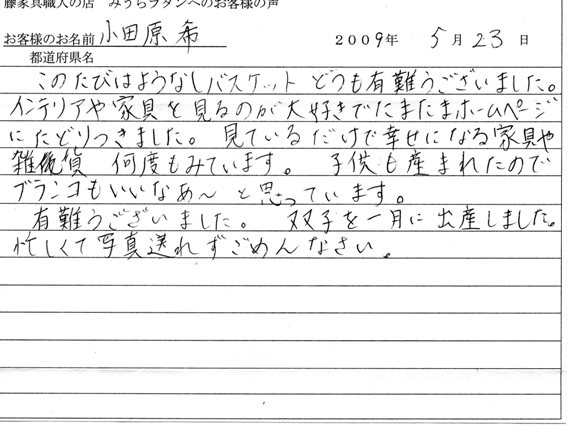 藤家具職人の店　みうらラタンへのお客様の声
お客様のお名前 小田原 希　2009年 5月23日
都道府県名
このたびはようなしバスケット どうも有難うございました。
インテリアや家具を見るのが大好きでたまたまホームページ
にたどりつきました。見ているだけで幸せになる家具や
雑貨 何度もみています。 子供も産まれたので
ブランコもいいなあ〜と思っています。
有難うございました。 双子を一月に出産しました。
忙しくて写真送れずごめんなさい。